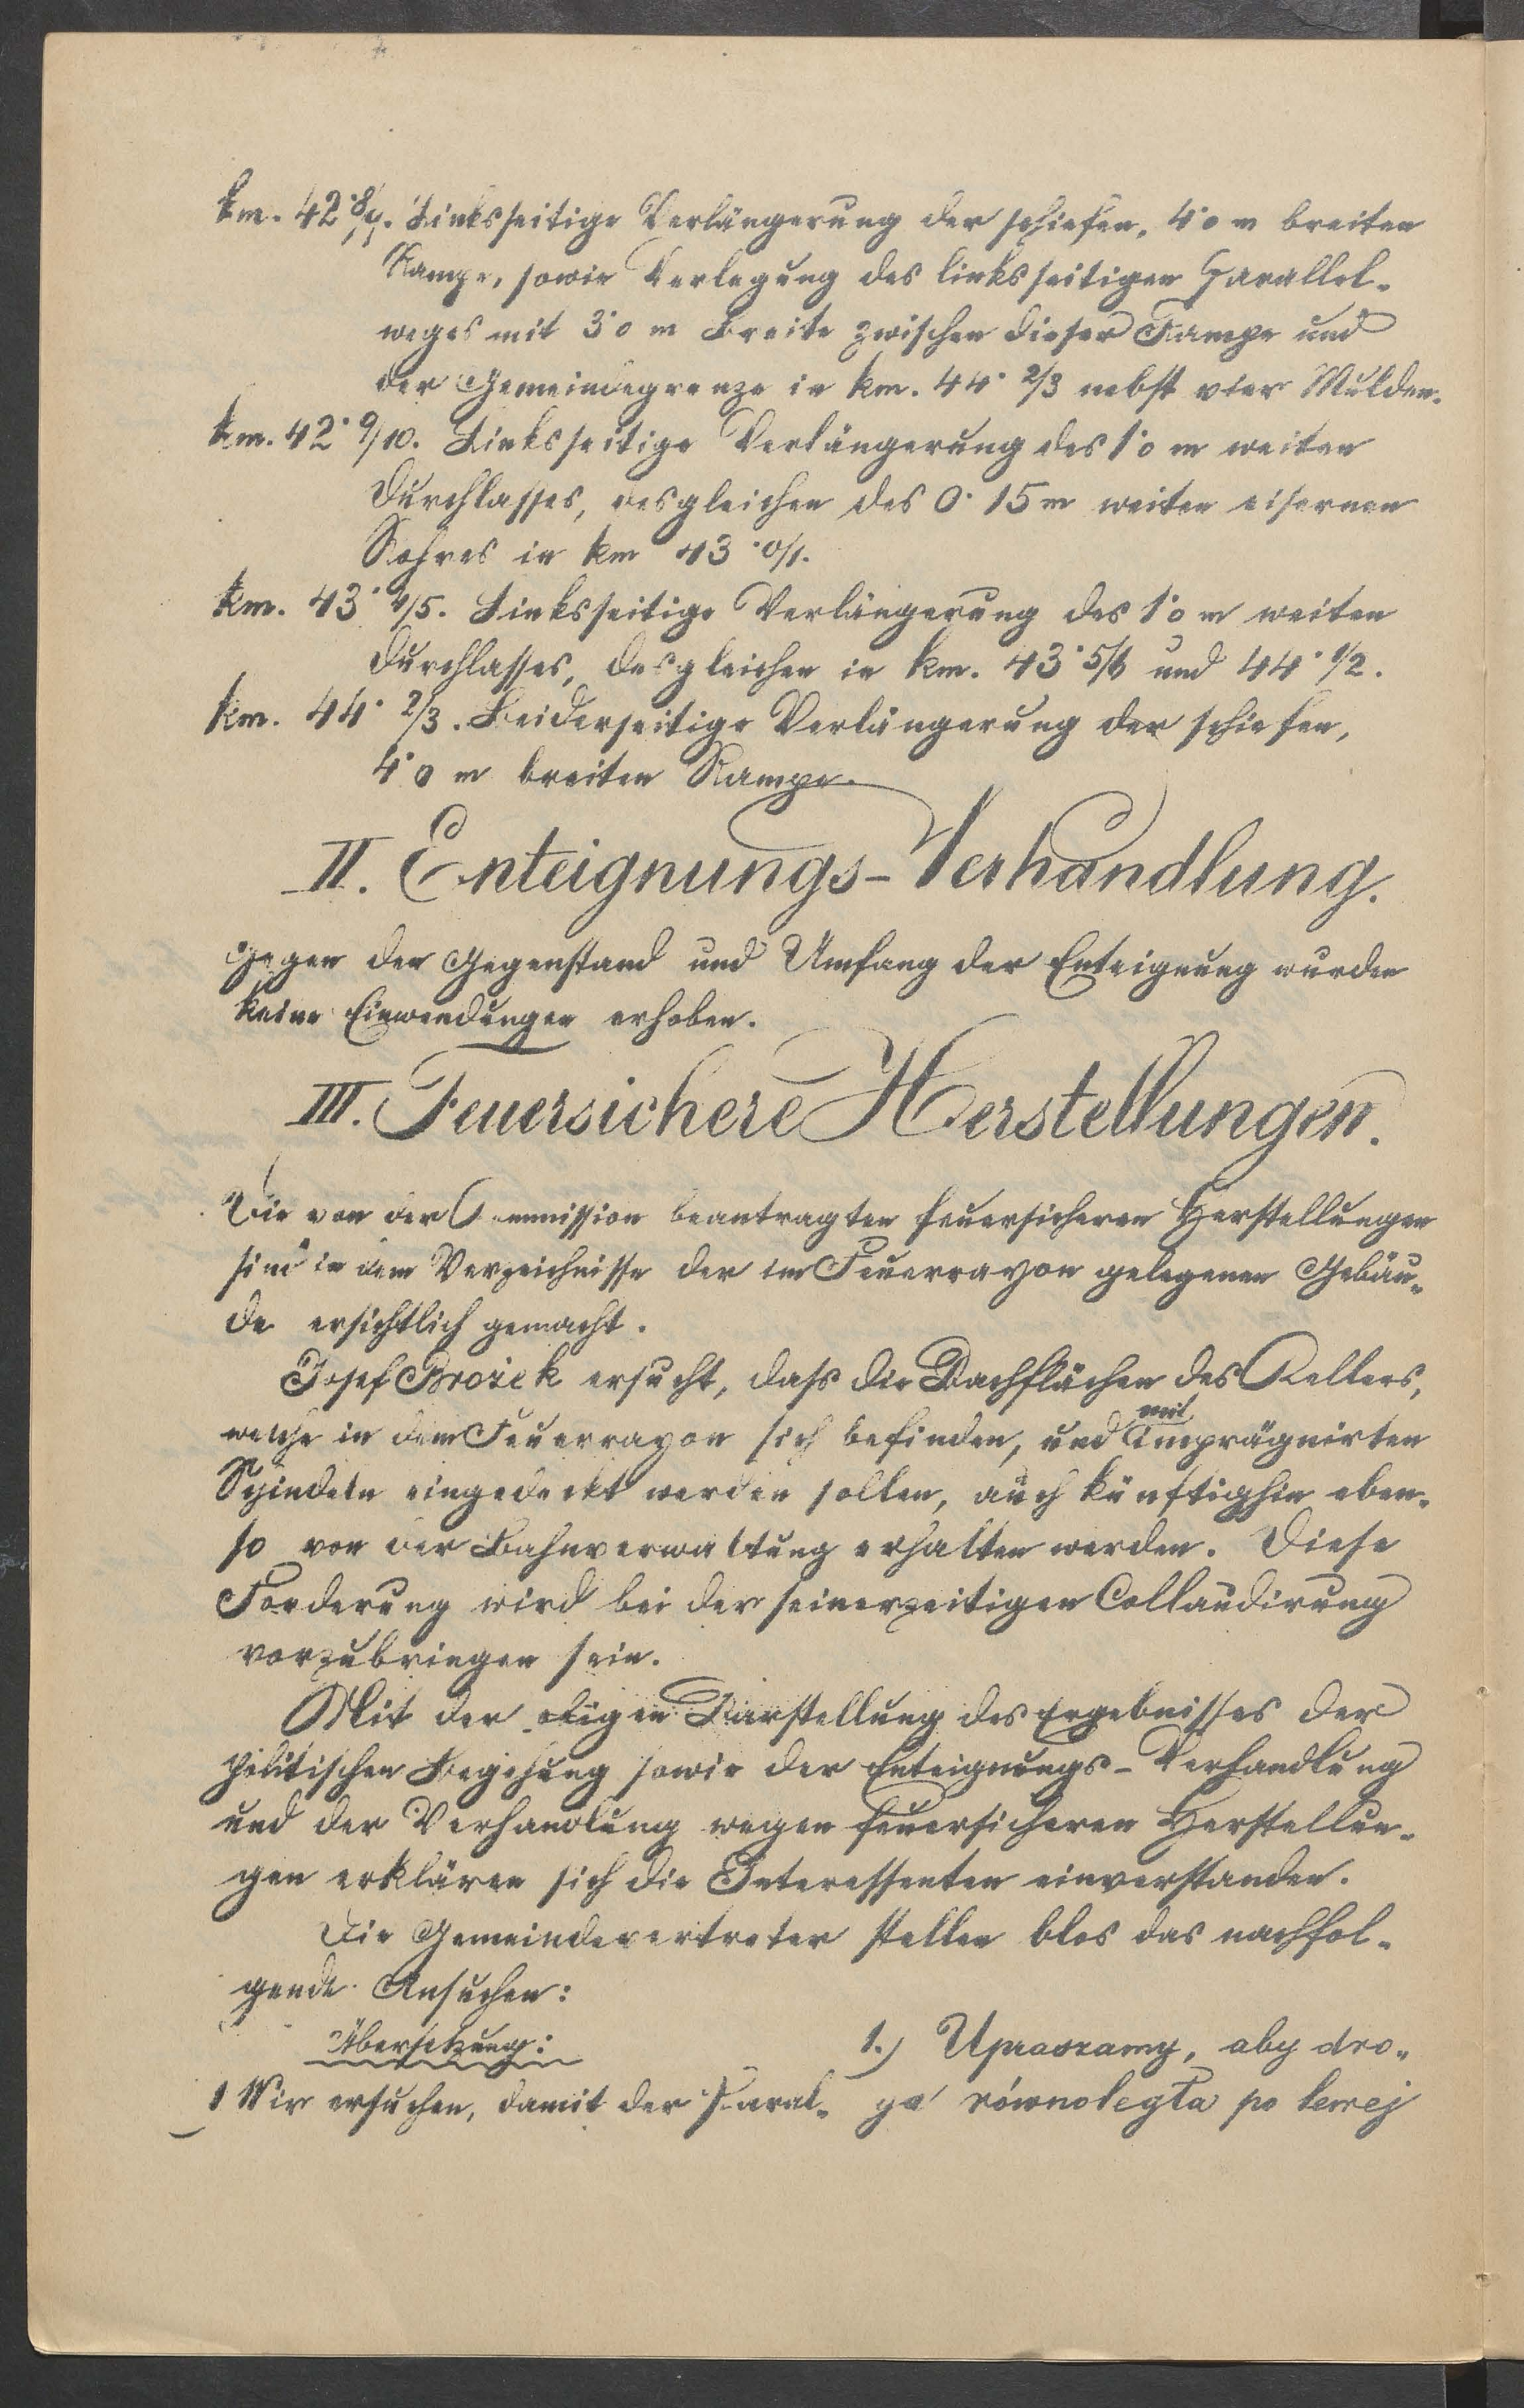 km. 42·8/9. Linksseitige Verlängerung der schiefen, 4·0 m breiten
Rampe, sowie Verlegung des linksseitigen Parallel-
weges mit 3·0 m Breite zwischen dieser Rampe und
der Gemeindegrenze in km. 44·2/3 nebst vier Mulden.
km. 42·9/10. Linksseitige Verlängerung des 1·0 m weiten
Durchlasses, desgleichen des 0·15 m weiten eisernen
Rohres in km 43·0/1.
km. 43·4/5. Linksseitige Verlängerung des 1·0 m weiten
Durchlasses, desgleichen in km. 43·5/6 und 44·1/2.
km. 44·2/3. Beiderseitige Verlängerung der schiefen,
4·0 m breiten Rampe.
II. Enteignungs-Verhandlung.
Gegen den Gegenstand und Umfang der Enteignung wurden
keine Einwendungen erhoben.
III. Feuersichere Herstellungen.
Die von der Commission beantragten feuersicheren Herstellungen
sind in dem Verzeichnisse der im Feuerrayon gelegenen Gebäu-
de ersichtlich gemacht.
Josef Brożek ersucht, dass die Dachflächen des Kellers,
welche in dem Feuerrayon sich befinden, und mit Imprägnirten
Schindeln eingedeckt werden sollen, auch künftighin eben-
so von der Bahnverwaltung erhalten werden. Diese
Forderung wird bei der seinerzeitigen Collaudirung
vorzubringen sein.
Mit der obigen Darstellung des Ergebnisses der
politischen Begehung sowie der Enteignungs-Verhandlung
und der Verhandlung wegen feuersicheren Herstellun-
gen erklären sich die Interessenten einverstanden.
Die Gemeindevertreter stellen blos das nachfol-
gende Ansuchen:
Übersetzung:
1 Wir ersuchen, damit der Paral-
1.) Upraszamy, aby dro-
ga równoległa po lewej